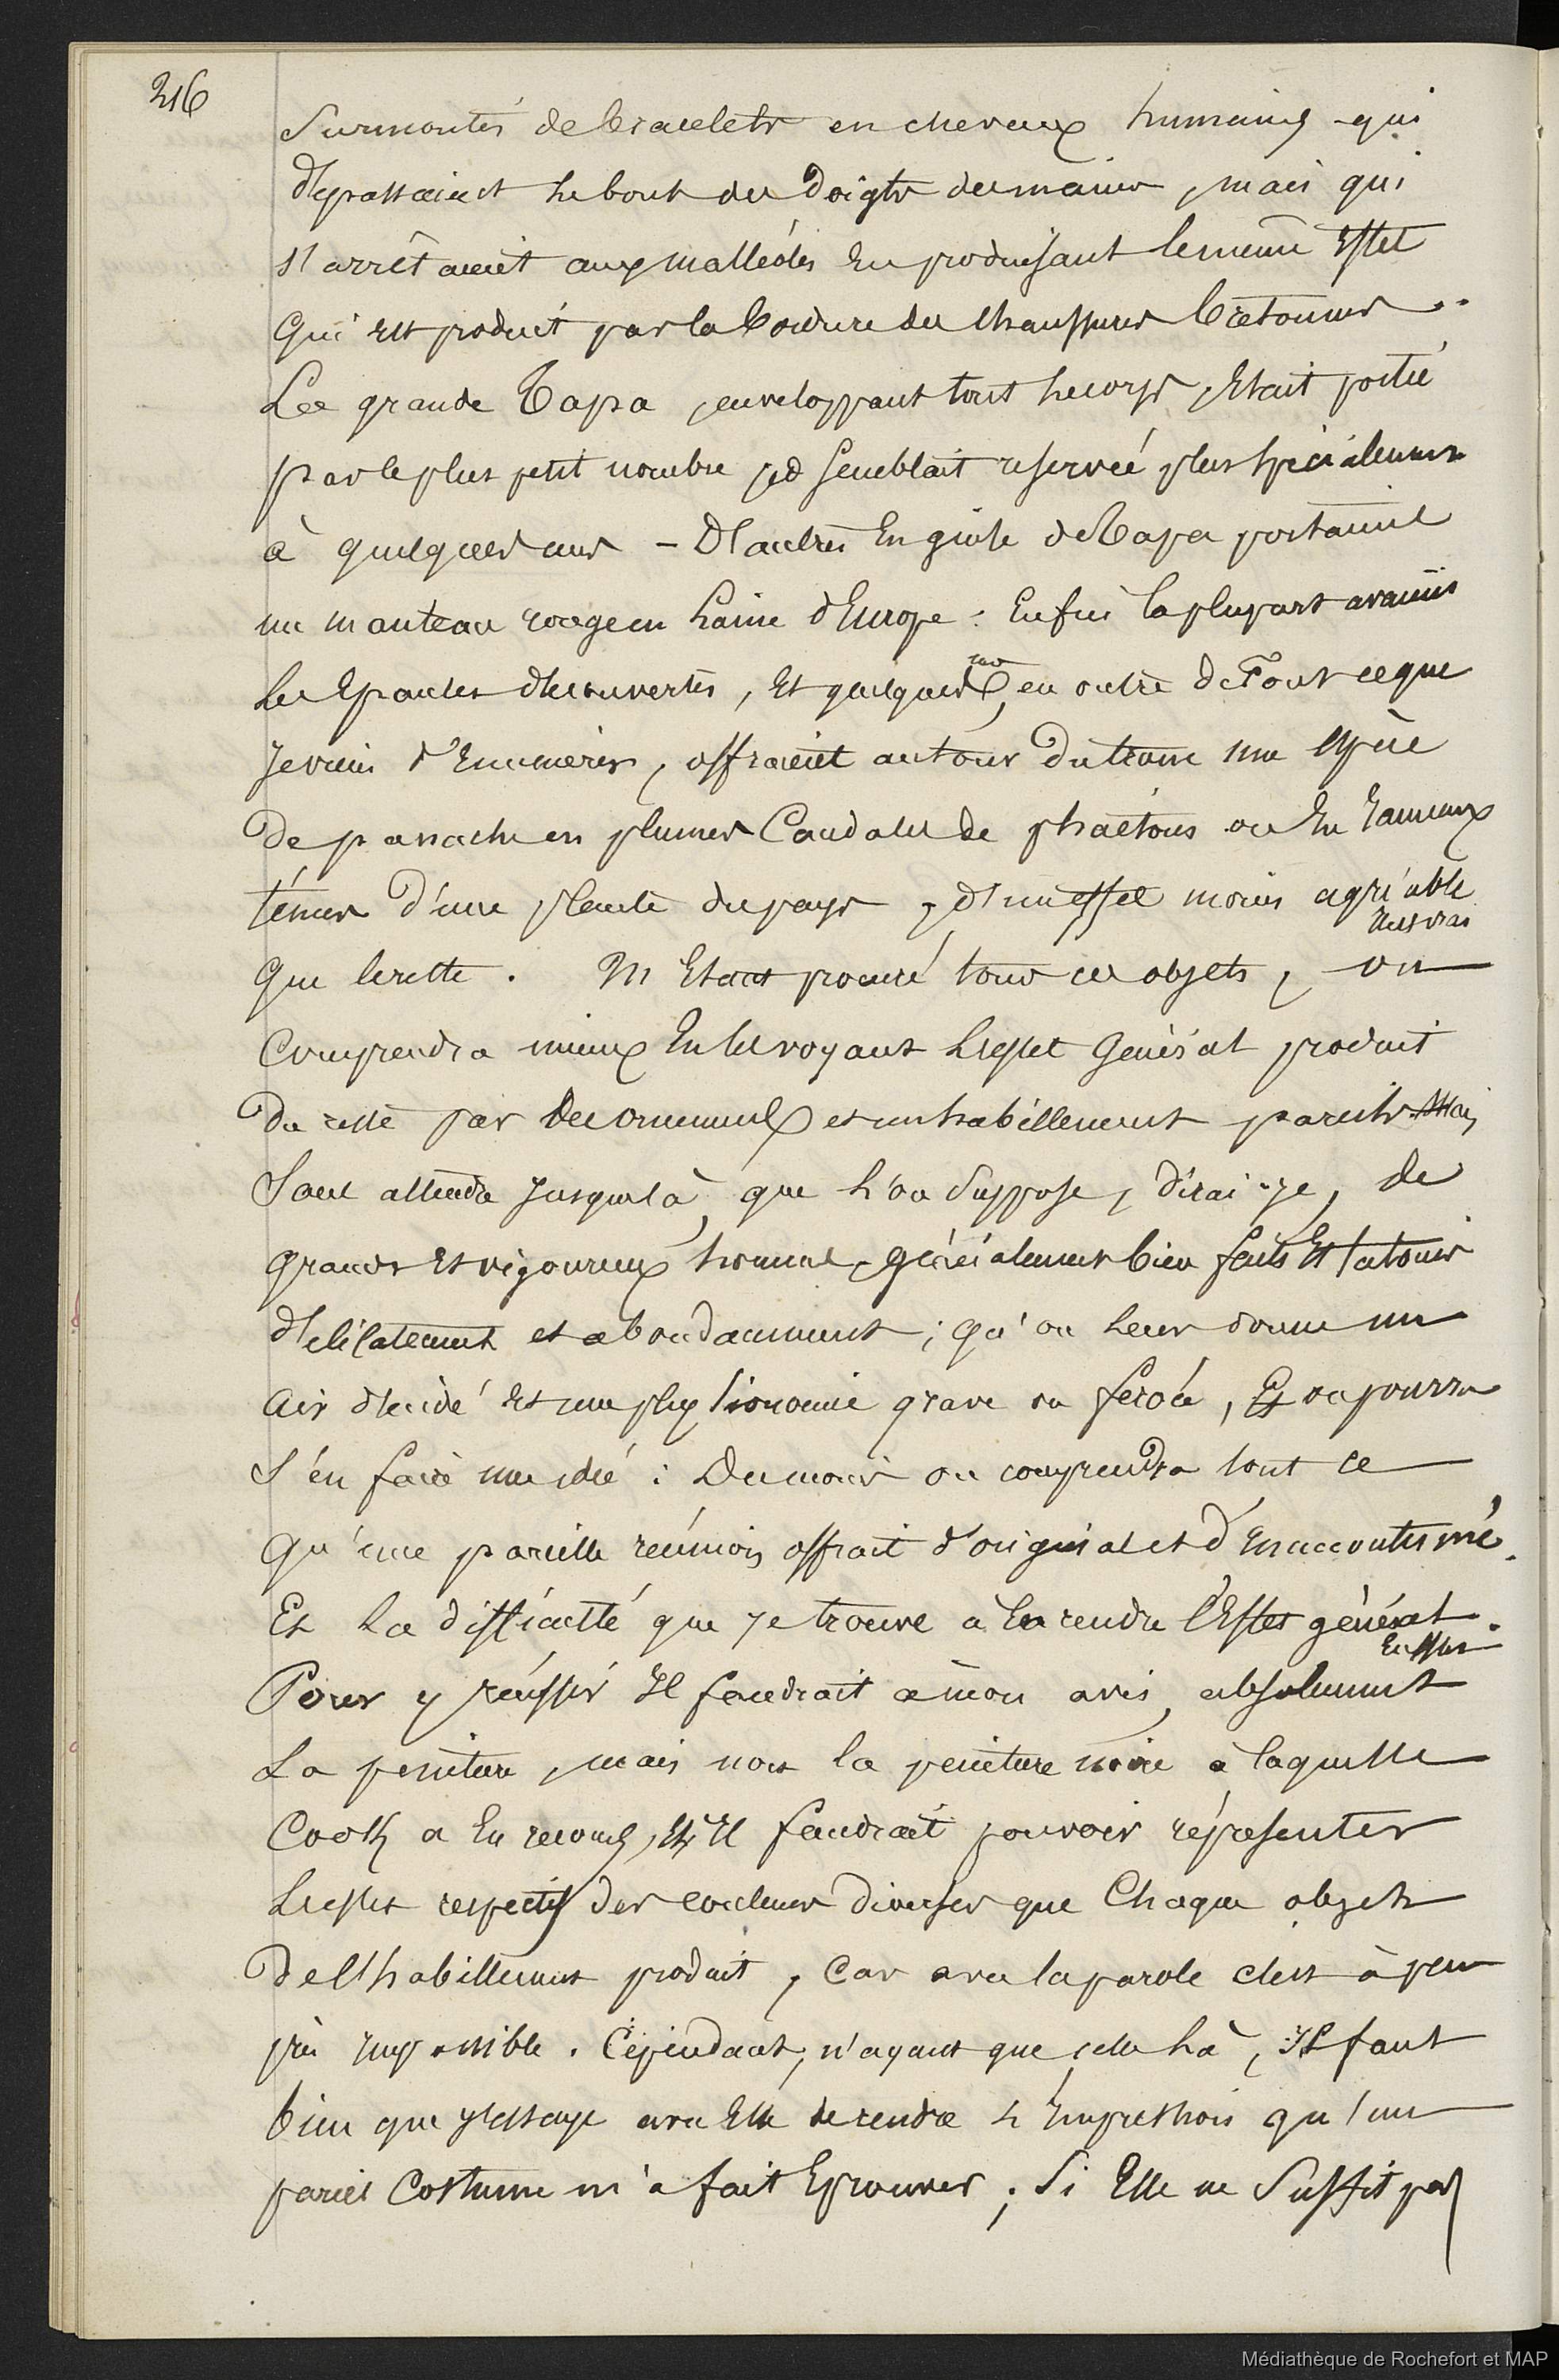 216
Surmontés de bracelets en cheveux humains qui
dépassaient le bout des doigts des mains, mais qui
s'arrêtaient aux malléoles En produisant le même Effet
Qui est produit par la bordure des chaussures bretonnes.
La grande Tapa, enveloppant tout le corps, Etait portée
par le plus petit nombre et semblait reservée plus spécialement
à quelques uns - D'autres En guise de Tapa portaient
un manteau rouge en laine d'Europe : Enfin la plupart avaient
les Epaules découvertes, Et quelques uns, en outre de Tout ce que
Je viens d'Enumérer, offraient autour du tronc une Espèce
De panache en plumes Caudales de phaétons ou En rameaux
ténus d'une plante du pays, d'un effet moins agréable
Que le reste. M'Etant procuré tous ces objets, on
Comprendra mieux En les voyant L'effet Général produit
Du reste par des ornements et un habillement pareils. Mais
Sans attendre Jusque là, que l'on Suppose, dirai-je, de
grands Et vigoureux hommes, Généralement bien faits Et tatoués
délicatement et abondamment ; qu'on leur donne un
Air décidé Et une physionomie grave ou féroce, Et on pourra
S'en faire une idée : Du moins on comprendra tout ce
Qu'une pareille réunion offrait d'original et d'Inaccoutumé.
Et La difficulté que je trouve à En rendre l'Effet général.
Pour y réussir Il faudrait à mon avis, absolument
La peinture, mais non la peinture noire à laquelle
Cook a Eu recours, Et Il faudrait pouvoir réprésenter
L'effet respectif des couleurs diverses que Chaque objet
De l'habillement produit, Car avec la parole c'est à peu
près Impossible. Cependant, n'ayant que celle là, Il faut
bien que J'essaye avec Elle de rendre L'Impression qu'un
pareil Costume m'a fait Eprouver ; Si Elle ne Suffit pas
Médiathèque de Rochefort et MAP